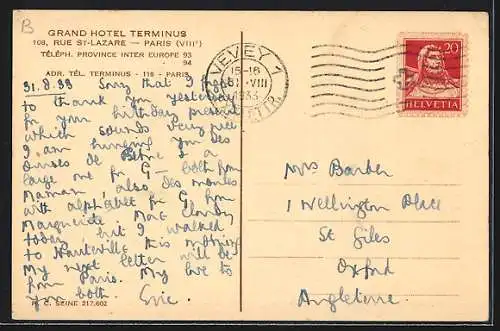 B
GRAND HOTEL TERMINUS
108, RUE ST-LAZARE — PARIS (VIIIe)
TÉLÉPH. PROVINCE INTER EUROPE 93
94
ADR. TÉL. TERMINUS - 118 - PARIS
VEVEY 1
15-16
31. VIII
1933
20
HELVETIA
31.8.33 Sorry that I forgot
to thank you yesterday
for your birthday present
which sounds very nice
I am bringing you
de Bébé I a
large one for G — both from
Maman, also des moules
with alphabet for G from
Marguerite. More cloudy
today, but I walked
to Hauteville this morning
My next letter will be
from Paris. My love to
you both. Eric.
Mrs Barber
1 Wellington Place
St Giles
Oxford
Angleterre
R. C. SEINE 217.602